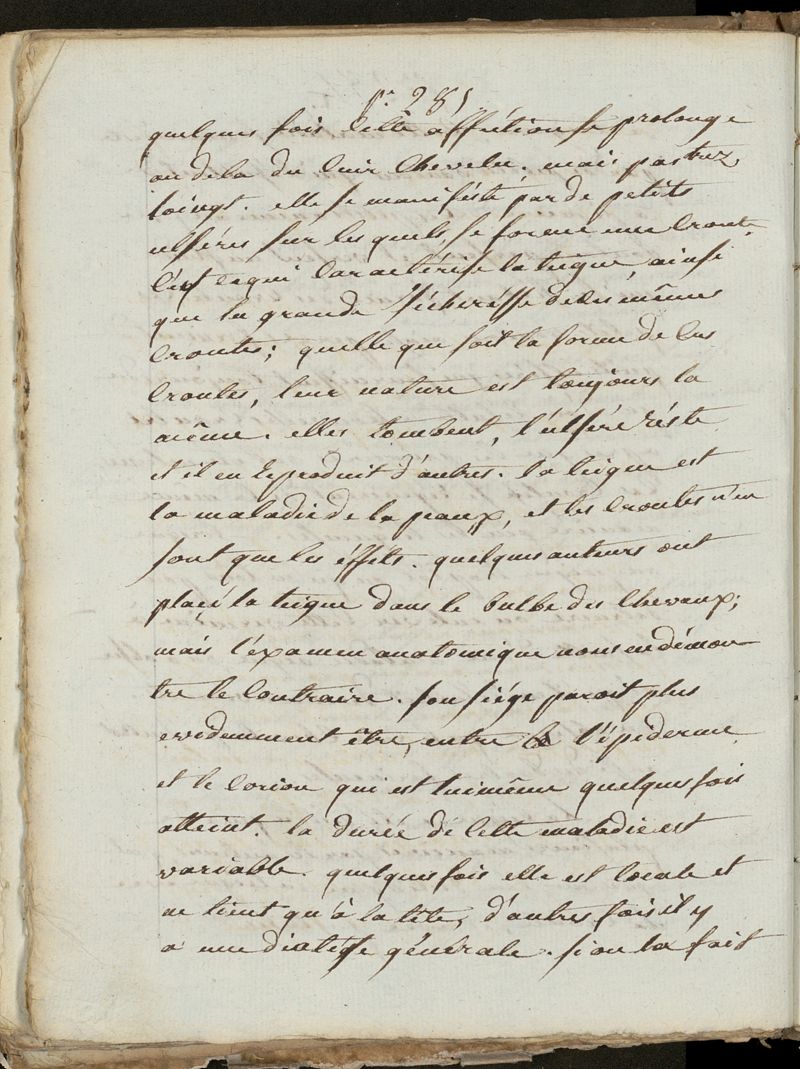 pe. 281
quelques fois cette afféction se prolonge
au dela du cuir chevelu. mais pas trez
loingt. elle se manifeste par de petits
ulséres sur les quels, se forme une croute.
c'est ce qui caractérise la teigne, ainsi
que la grande sécherésse de ces mêmes
croutes; quelle que soit la forme de ces
croutes, leur nature est toujours la
même. elles tombent, l'ulsére réste
et il en reproduit d'autres. la teigne est
la maladie de la peaux, et les croutes n'en
sont que les éffets. quelques auteurs ont
placé la teigne dans le bulbe des chevaux;
mais l'éxamen anatomique nous en démon
tre le contraire. son siége paroit plus
evidemment être, entre l'épiderme
et le corion qui est lui même quelques fois
atteint. la durée de cette maladie est
variable. quelques fois elle est locale et
ne tient qu'à la tête, d'autres fois il y
a une diatése générale. si on la fait